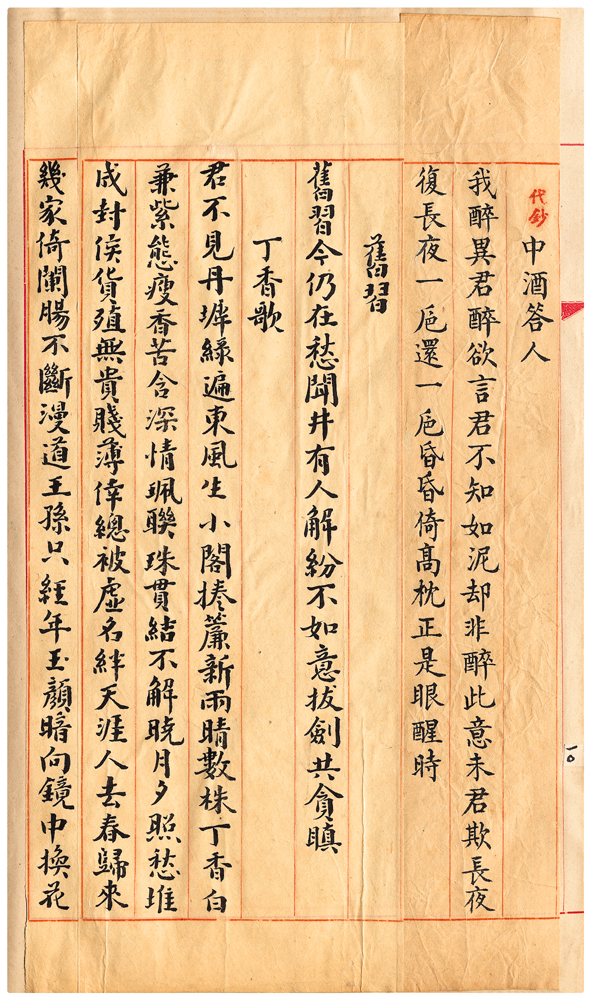 代鈔
中酒答人
我醉異君醉欲言君不知如泥却非醉此意未君欺長夜
復長夜一卮還一卮昏昏倚高枕正是眼醒時
舊習
舊習今仍在愁聞井有人解紛不如意拔劍共貪瞋
丁香歌
君不見丹墀綠遍東風生小閣捲簾新雨晴數株丁香白
兼紫態瘦香苦含深情珮聯珠貫結不解曉月夕照愁堆
成封侯貨殖無貴賤薄倖總被虛名絆天涯人去春歸來
幾家倚闌腸不斷漫道王孫只經年玉顏暗向鏡中換花
一〇